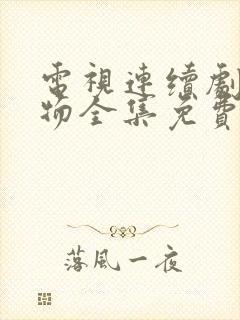 電視連續劇
物全集免費
落風一夜